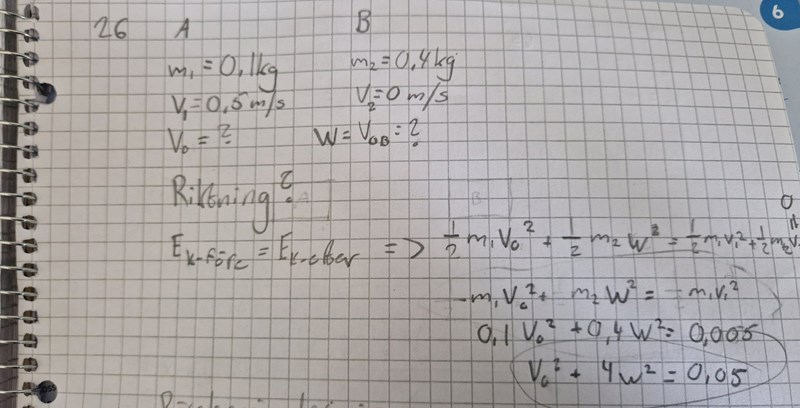 6
26 A B
m₁ = 0,1kg m₂ = 0,4kg
V₁ = 0,5 m/s V₂ = 0 m/s
V₀ = ? W = V₀B = ?
Riktning?
Ek-före = Ek-efter => 1/2 m₁V₀² + 1/2 m₂W² = 1/2 m₁V₁² + 1/2 m₂V₂
0
m₁V₀² + m₂W² = m₁V₁²
0,1V₀² + 0,4W² = 0,005
V₀² + 4W² = 0,05